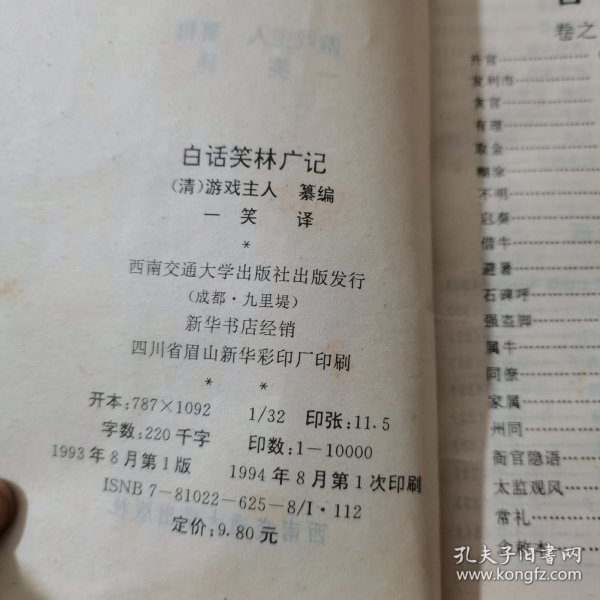 白话笑林广记
(清)游戏主人 纂编
一笑 译
*
西南交通大学出版社出版发行
(成都·九里堤)
新华书店经销
四川省眉山新华彩印厂印刷
* *
开本:787×1092 1/32 印张:11.5
字数:220千字 印数:1-10000
1993年8月第1版 1994年8月第1次印刷
ISNB7-81022-625-8/I·112
定价:9.80元
卷之
升官
发利市
贪官
有理
取金
糊涂
不明
启奏
借牛
避暑
石碑呼
强盗脚
属牛
同僚
家属
州同
衙官隐语
太监观风
常礼
孔夫子旧书网
www.kongfz.com